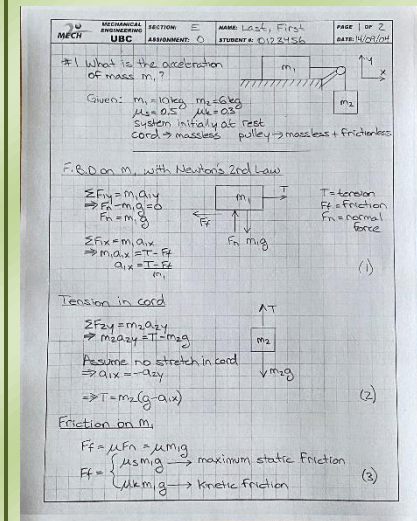 MECH
MECHANICAL ENGINEERING UBC
SECTION: E
ASSIGNMENT: 0
NAME: Last, First
STUDENT #: 0123456
PAGE 1 OF 2
DATE: 14/09/04
#1. What is the acceleration
of mass m₁?
m₁
y
x
m₂
Given: m₁ = 10kg m₂ = 6kg
μs = 0.5 μk = 0.3
system initially at rest
cord → massless pulley → massless + frictionless
F.B.D on m₁ with Newton's 2nd Law
ΣF₁y = m₁a₁y
⇒ Fn - m₁g = 0
Fn = m₁g
m₁
T
Ff
Fn m₁g
T = tension
Ff = friction
Fn = normal
force
ΣF₁x = m₁a₁x
⇒ m₁a₁x = T - Ff
a₁x = T - Ff / m₁
(1)
Tension in cord
ΣF₂y = m₂a₂y
⇒ m₂a₂y = T - m₂g
T
m₂
m₂g
Assume no stretch in cord
⇒ a₁x = -a₂y
⇒ T = m₂(g - a₁x)
(2)
Friction on m₁
Ff = μFn = μm₁g
Ff = { μsm₁g → maximum static friction
μkm₁g → kinetic friction
(3)